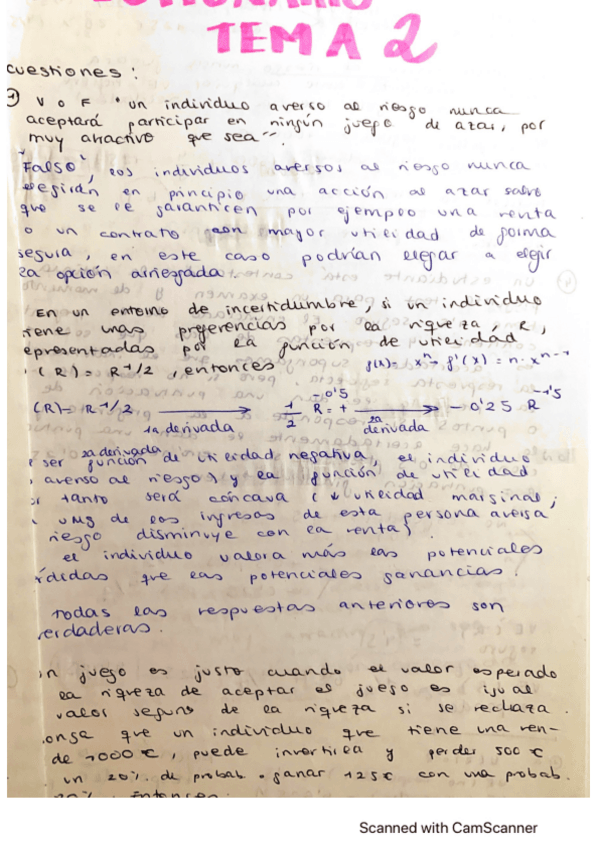 TEMA 2
cuestiones:
1 V o F "un individuo averso al riesgo nunca
aceptará participar en ningún juego de azar, por
muy atractivo que sea".
"Falso", los individuos aversos al riesgo nunca
elegirán en principio una acción al azar salvo
que se le garanticen por ejemplo una renta
o un contrato con mayor utilidad de forma
segura, en este caso podrían llegar a elegir
la opción arriesgada
En un entorno de incertidumbre, si un individuo
tiene unas preferencias por la riqueza, R,
epresentadas por la función de utilidad
(R) = R^1/2, entonces f(x) = x^n → f'(x) = n · x^n-1
(R) = R^1/2 1a derivada 1/2 R^-0'5 = + 2a derivada -0'25 R^-1'5
ser 2a derivada función de utilidad negativa, el individuo
averso al riesgo y la función de utilidad
tanto será cóncava (↓ utilidad marginal;
UMg de los ingresos de esta persona aversa
riesgo disminuye con la renta)
el individuo valora más las potenciales
érdidas que las potenciales ganancias.
Todas las respuestas anteriores son
verdaderas.
un juego es justo cuando el valor esperado
la riqueza de aceptar el juego es igual
valor seguro de la riqueza si se rechaza.
onga que un individuo que tiene una ren-
de 1000 €, puede invertirla y perder 500 €
un 20% de probab. o ganar 125€ con una probab.
Entonces
Scanned with CamScanner